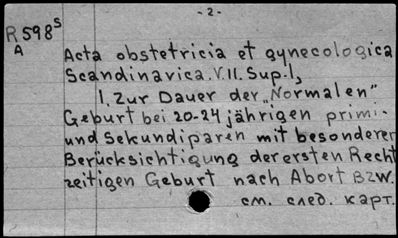 - 2 -
R 598 S
A
Acta obstetricia et gynecologica
Scandinavica. V.II. Sup.1,
1. Zur Dauer der „Normalen"
Geburt bei 20-24 jährigen primi-
und Sekundiparen mit besonderer
Berücksichtigung der ersten Recht
zeitigen Geburt nach Abort BZW.
см. след. карт.